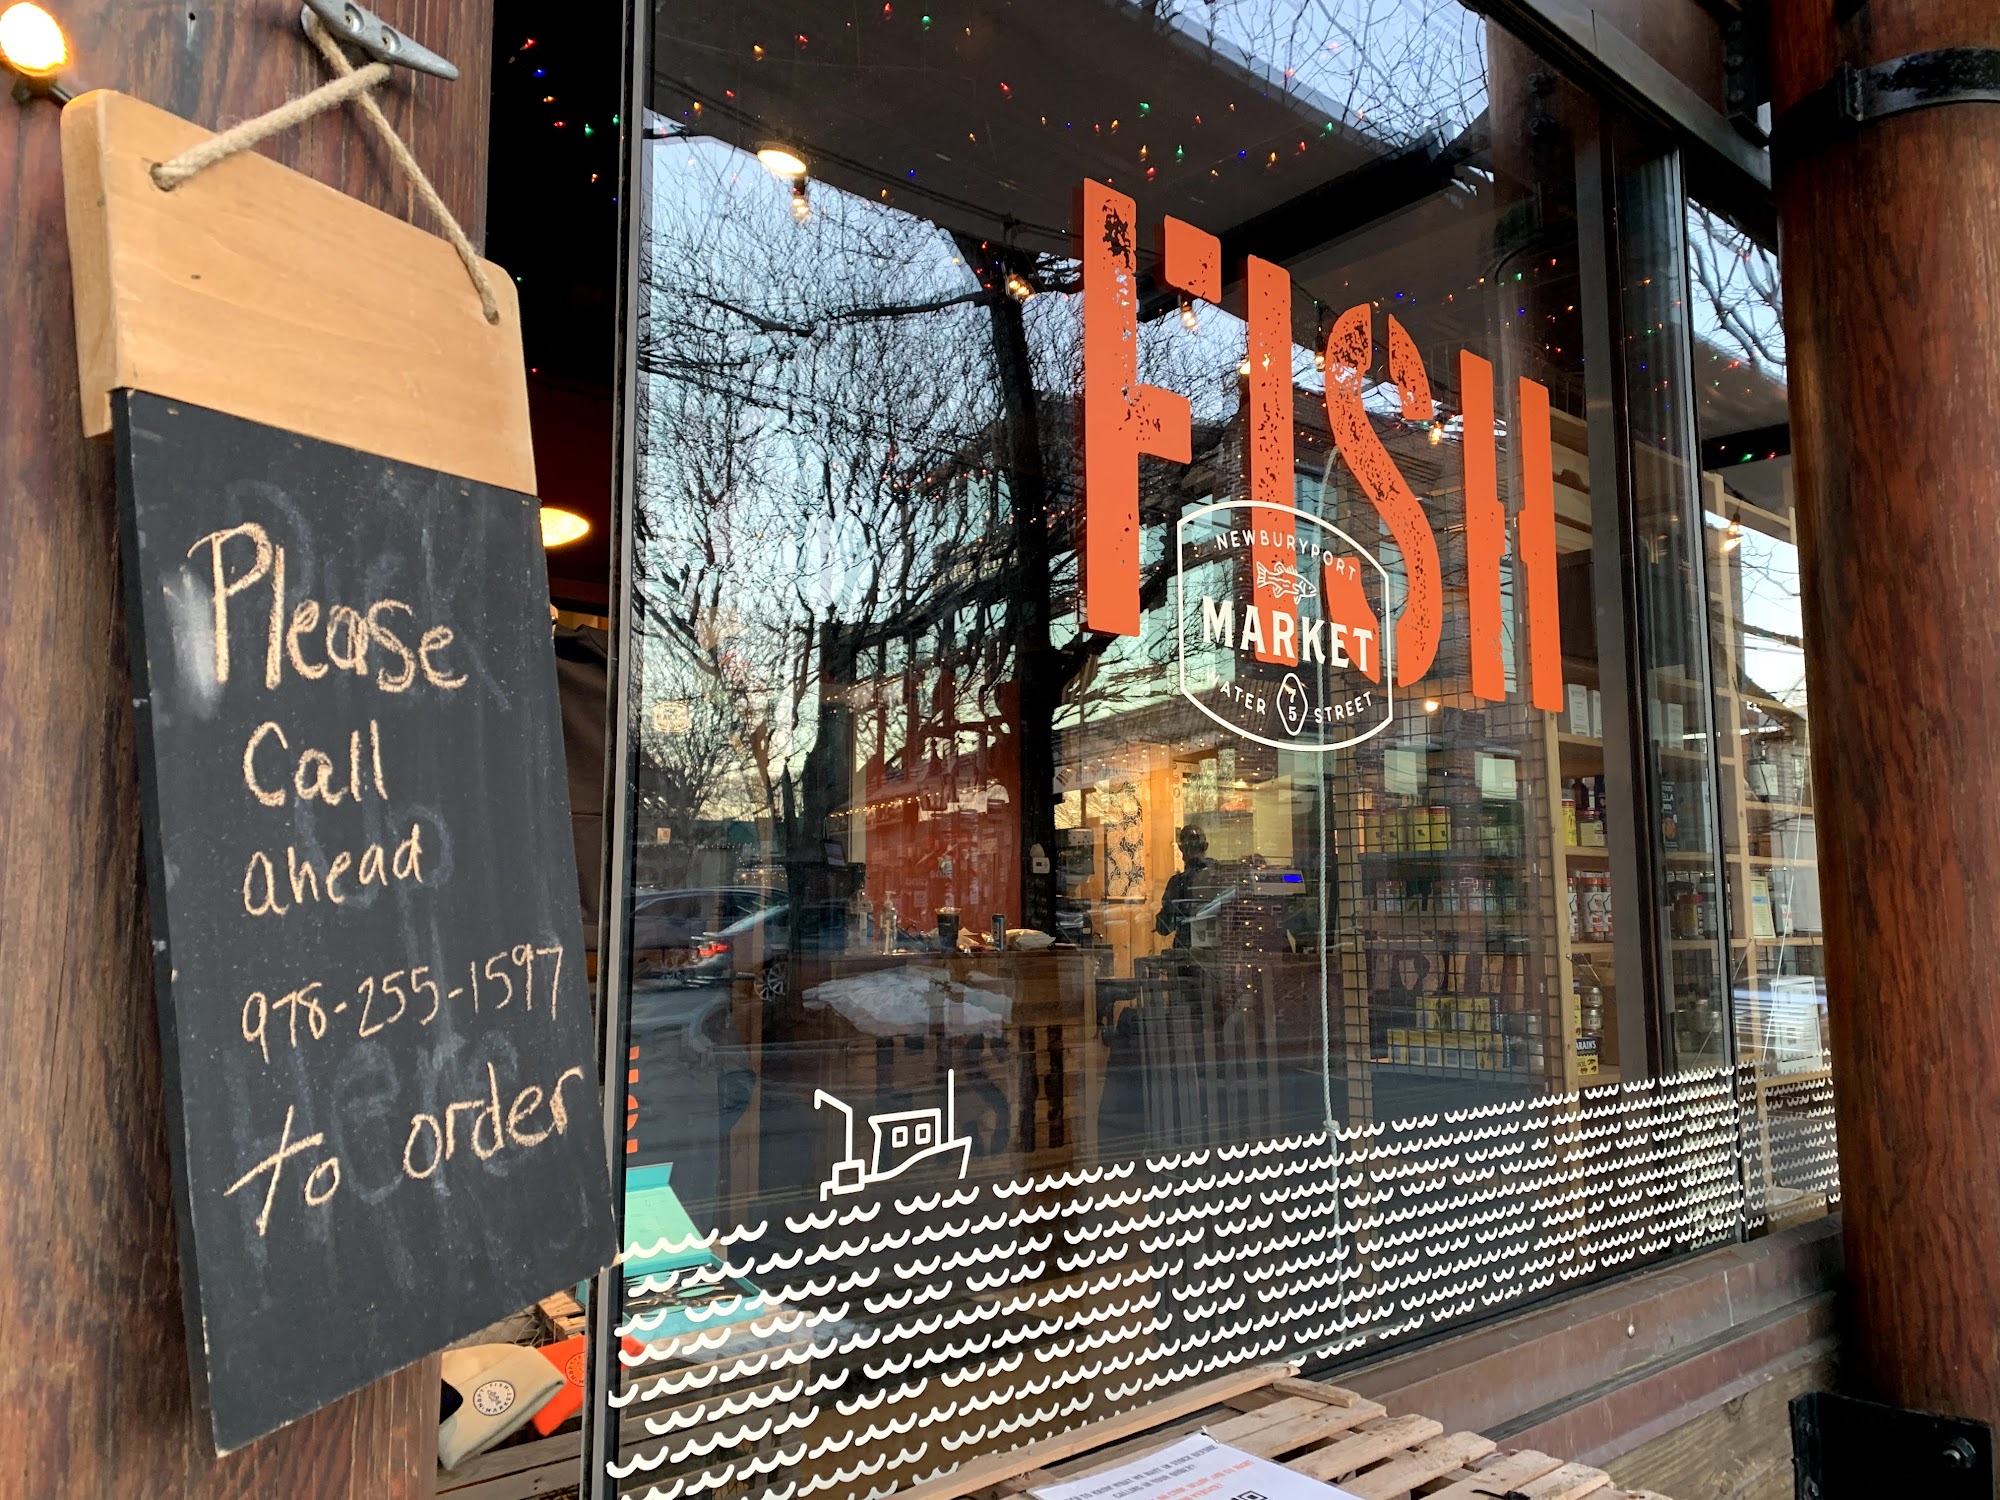 Please
Call
ahead
978-255-1597
to order
FISH
NEWBURYPORT
MARKET
WATER 75 STREET